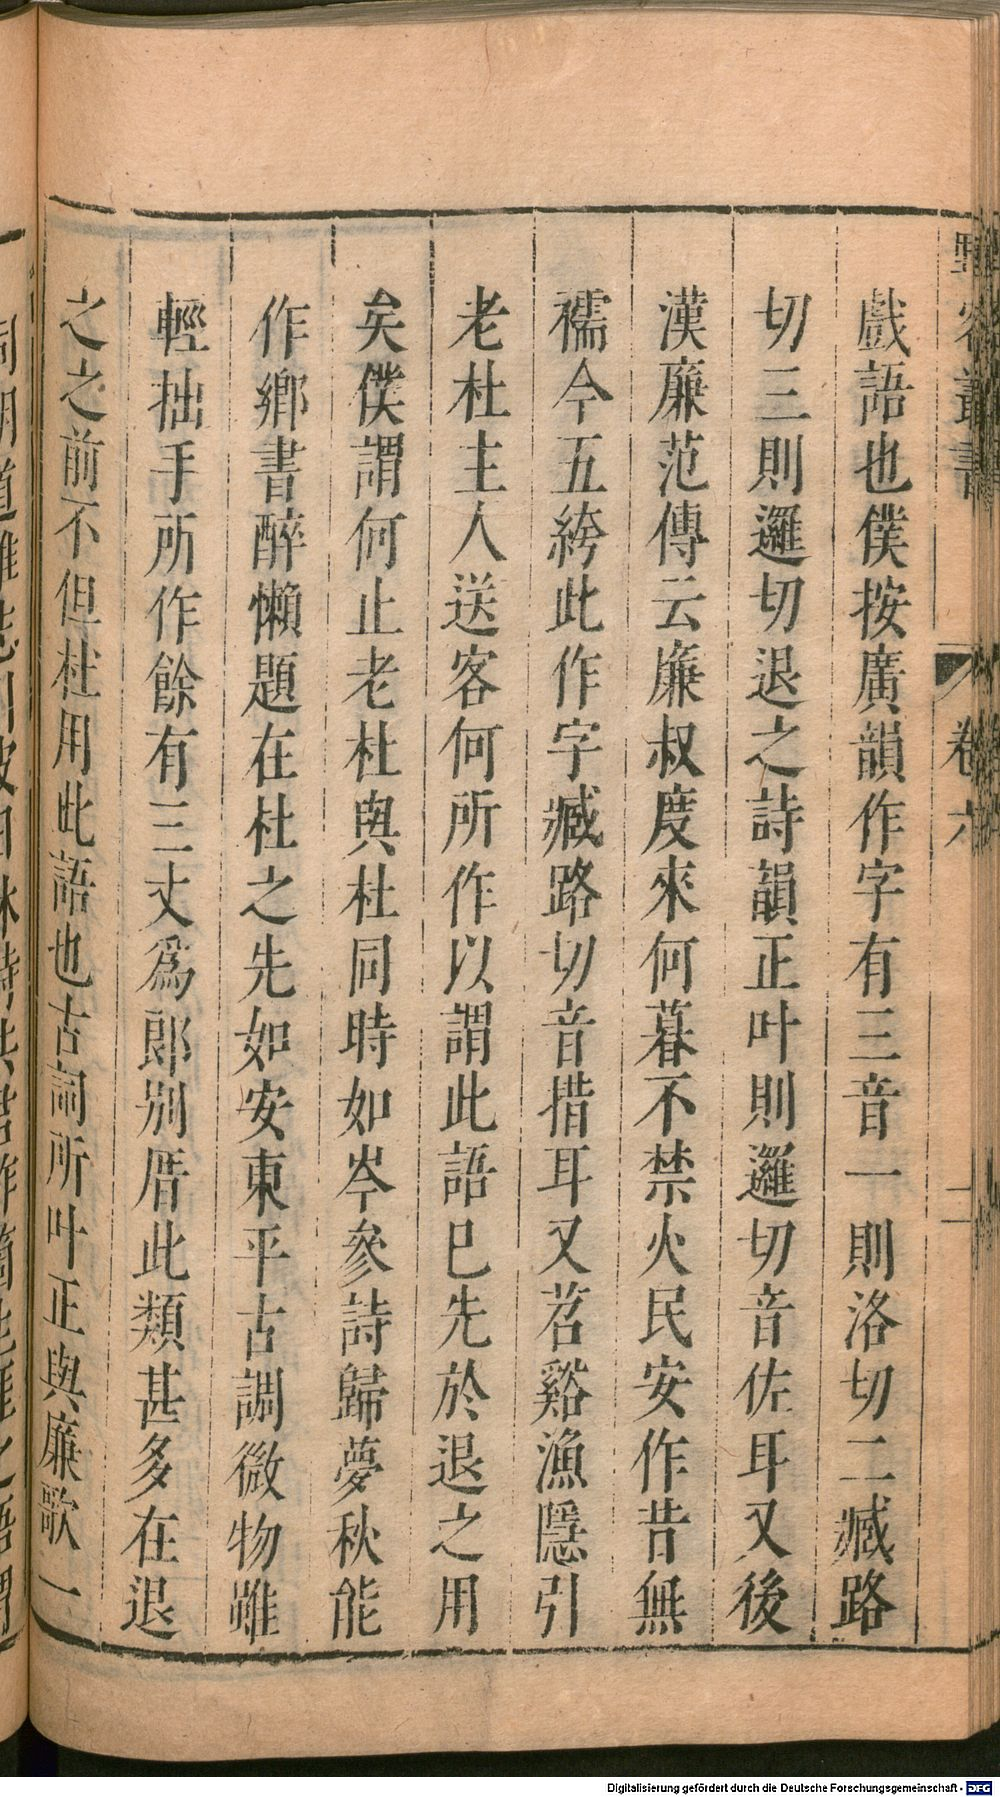 野客叢書
卷六
二
戲語也僕按廣韻作字有三音一則洛切二臧路
切三則邏切退之詩韻正叶則邏切音佐耳又後
漢廉范傳云廉叔度來何暮不禁火民安作昔無
襦今五絝此作字臧路切音措耳又苕谿漁隱引
老杜主人送客何所作以謂此語已先於退之用
矣僕謂何止老杜與杜同時如岑參詩歸夢秋能
作鄉書醉懶題在杜之先如安東平古調微物雖
輕拙手所作餘有三丈爲郎别厝此類甚多在退
之之前不但杜用此語也古詞所叶正與廉歌一
Digitalisierung gefördert durch die Deutsche Forschungsgemeinschaft - DFG